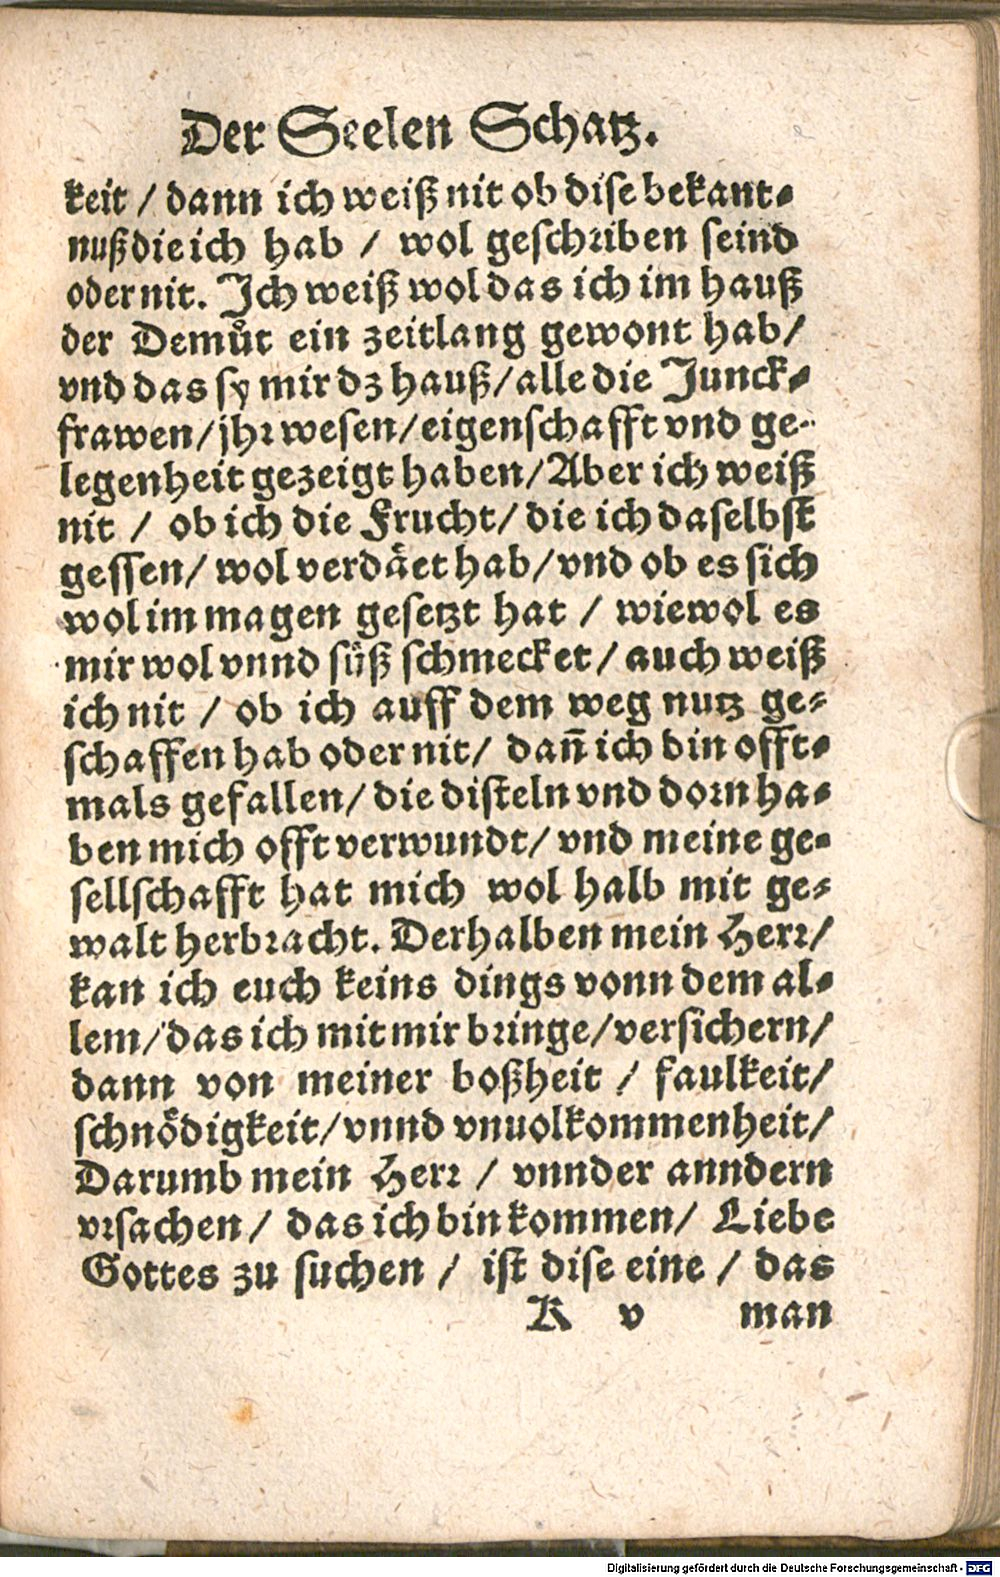 Der Seelen Schatz.
keit / dann ich weiß nit ob dise bekant⸗
nuß die ich hab / wol geschriben seind
oder nit. Ich weiß wol das ich im hauß
der Demuͤt ein zeitlang gewont hab/
vnd das sy mir dz hauß/alle die Junck⸗
frawen/jhr wesen/eigenschafft vnd ge⸗
legenheit gezeigt haben/Aber ich weiß
nit / ob ich die Frucht/ die ich daselbst
gessen/ wol verdaͤet hab/vnd ob es sich
wol im magen gesetzt hat / wiewol es
mir wol vnnd suͤß schmecket/ auch weiß
ich nit / ob ich auff dem weg nutz ge⸗
schaffen hab oder nit/ dañ ich bin offt⸗
mals gefallen/ die disteln vnd dorn ha⸗
ben mich offt verwundt/ vnd meine ge⸗
sellschafft hat mich wol halb mit ge⸗
walt herbracht. Derhalben mein Herr/
kan ich euch keins dings vonn dem al⸗
lem/das ich mit mir bringe/versichern/
dann von meiner boßheit / faulkeit/
schnoͤdigkeit/vnnd vnuolkommenheit/
Darumb mein Herr / vnnder anndern
vrsachen/ das ich bin kommen/ Liebe
Gottes zu suchen / ist dise eine / das
K v man
Digitalisierung gefördert durch die Deutsche Forschungsgemeinschaft - DFG